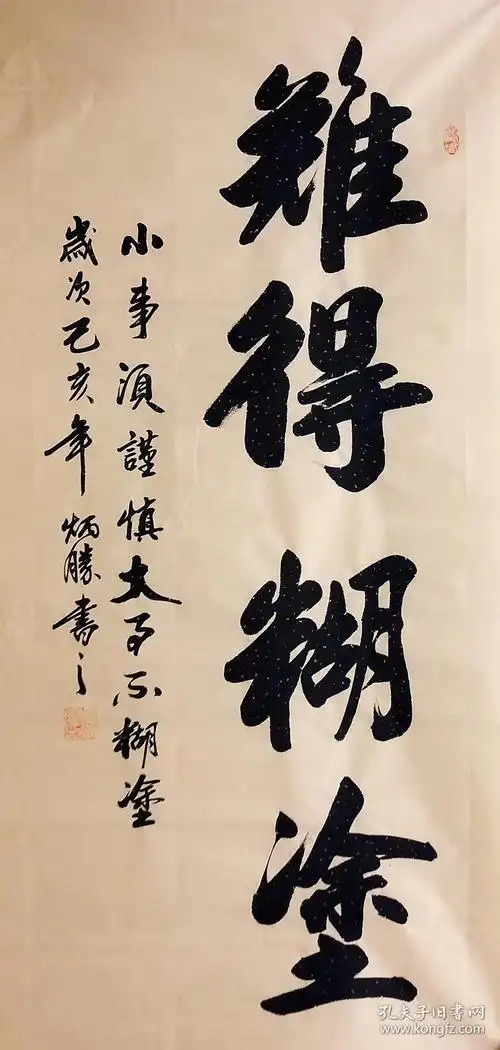 難得糊塗
小事須謹慎大事不糊塗
歲次己亥年炳勝書之
孔夫子旧书网
www.kongfz.com